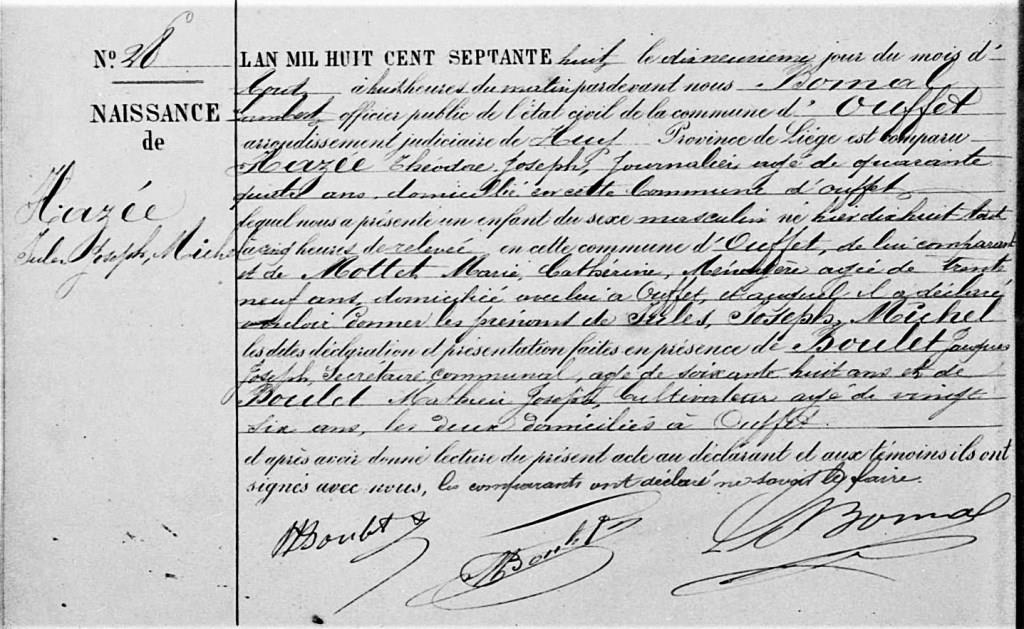 N.º 28
NAISSANCE
de
Hazée
Jules Joseph, Michel
LAN MIL HUIT CENT SEPTANTE huit le dixneuvieme jour du mois d'
Aout à huit heures du matin pardevant nous Bomal
Lambert officier public de l'état civil de la commune d' Ouffet
arrondissement judiciaire de Huy Province de Liége est comparu
Hazée Théodore Joseph, Journalier agé de quarante
quatre ans domicilié en cette Commune d'ouffet
lequel nous a présenté un enfant du sexe masculin né hier dix huit Aout
à cinq heures de relevée en cette commune d'Ouffet, de lui comparant
et de Mottet Marie, Cathérine, Ménagère agée de trente
neuf ans, domicilié avec lui à Ouffet, et auquel il a déclaré
vouloir donner les prénoms de Jules, Joseph, Michel
les dites déclaration et présentation faites en présence de Boulet Jacques
Joseph, Secrétaire communal, agé de soixante huit ans et de
Boulet Mathieu Joseph, Cultivateur agé de vingt
six ans, les deux domiciliés à Ouffet.
et après avoir donné lecture du présent acte au déclarant et aux témoins ils ont
signés avec nous, les comparants ont déclaré ne savoir le faire.
Boulet
Boulet
L Bomal